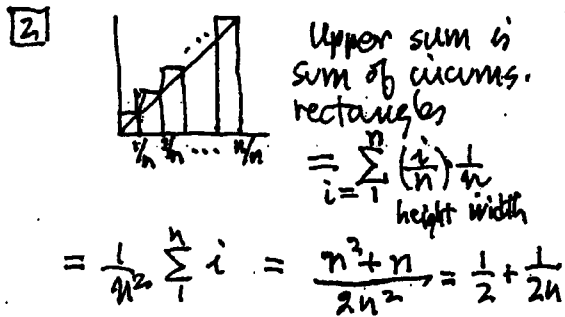 2
Upper sum is
sum of circums.
rectangles
= \sum_{i=1}^{n} (i/n) · 1/n
height width
1/n 2/n ... n/n
= 1/n² \sum_{1}^{n} i = (n²+n)/(2n²) = 1/2 + 1/(2n)